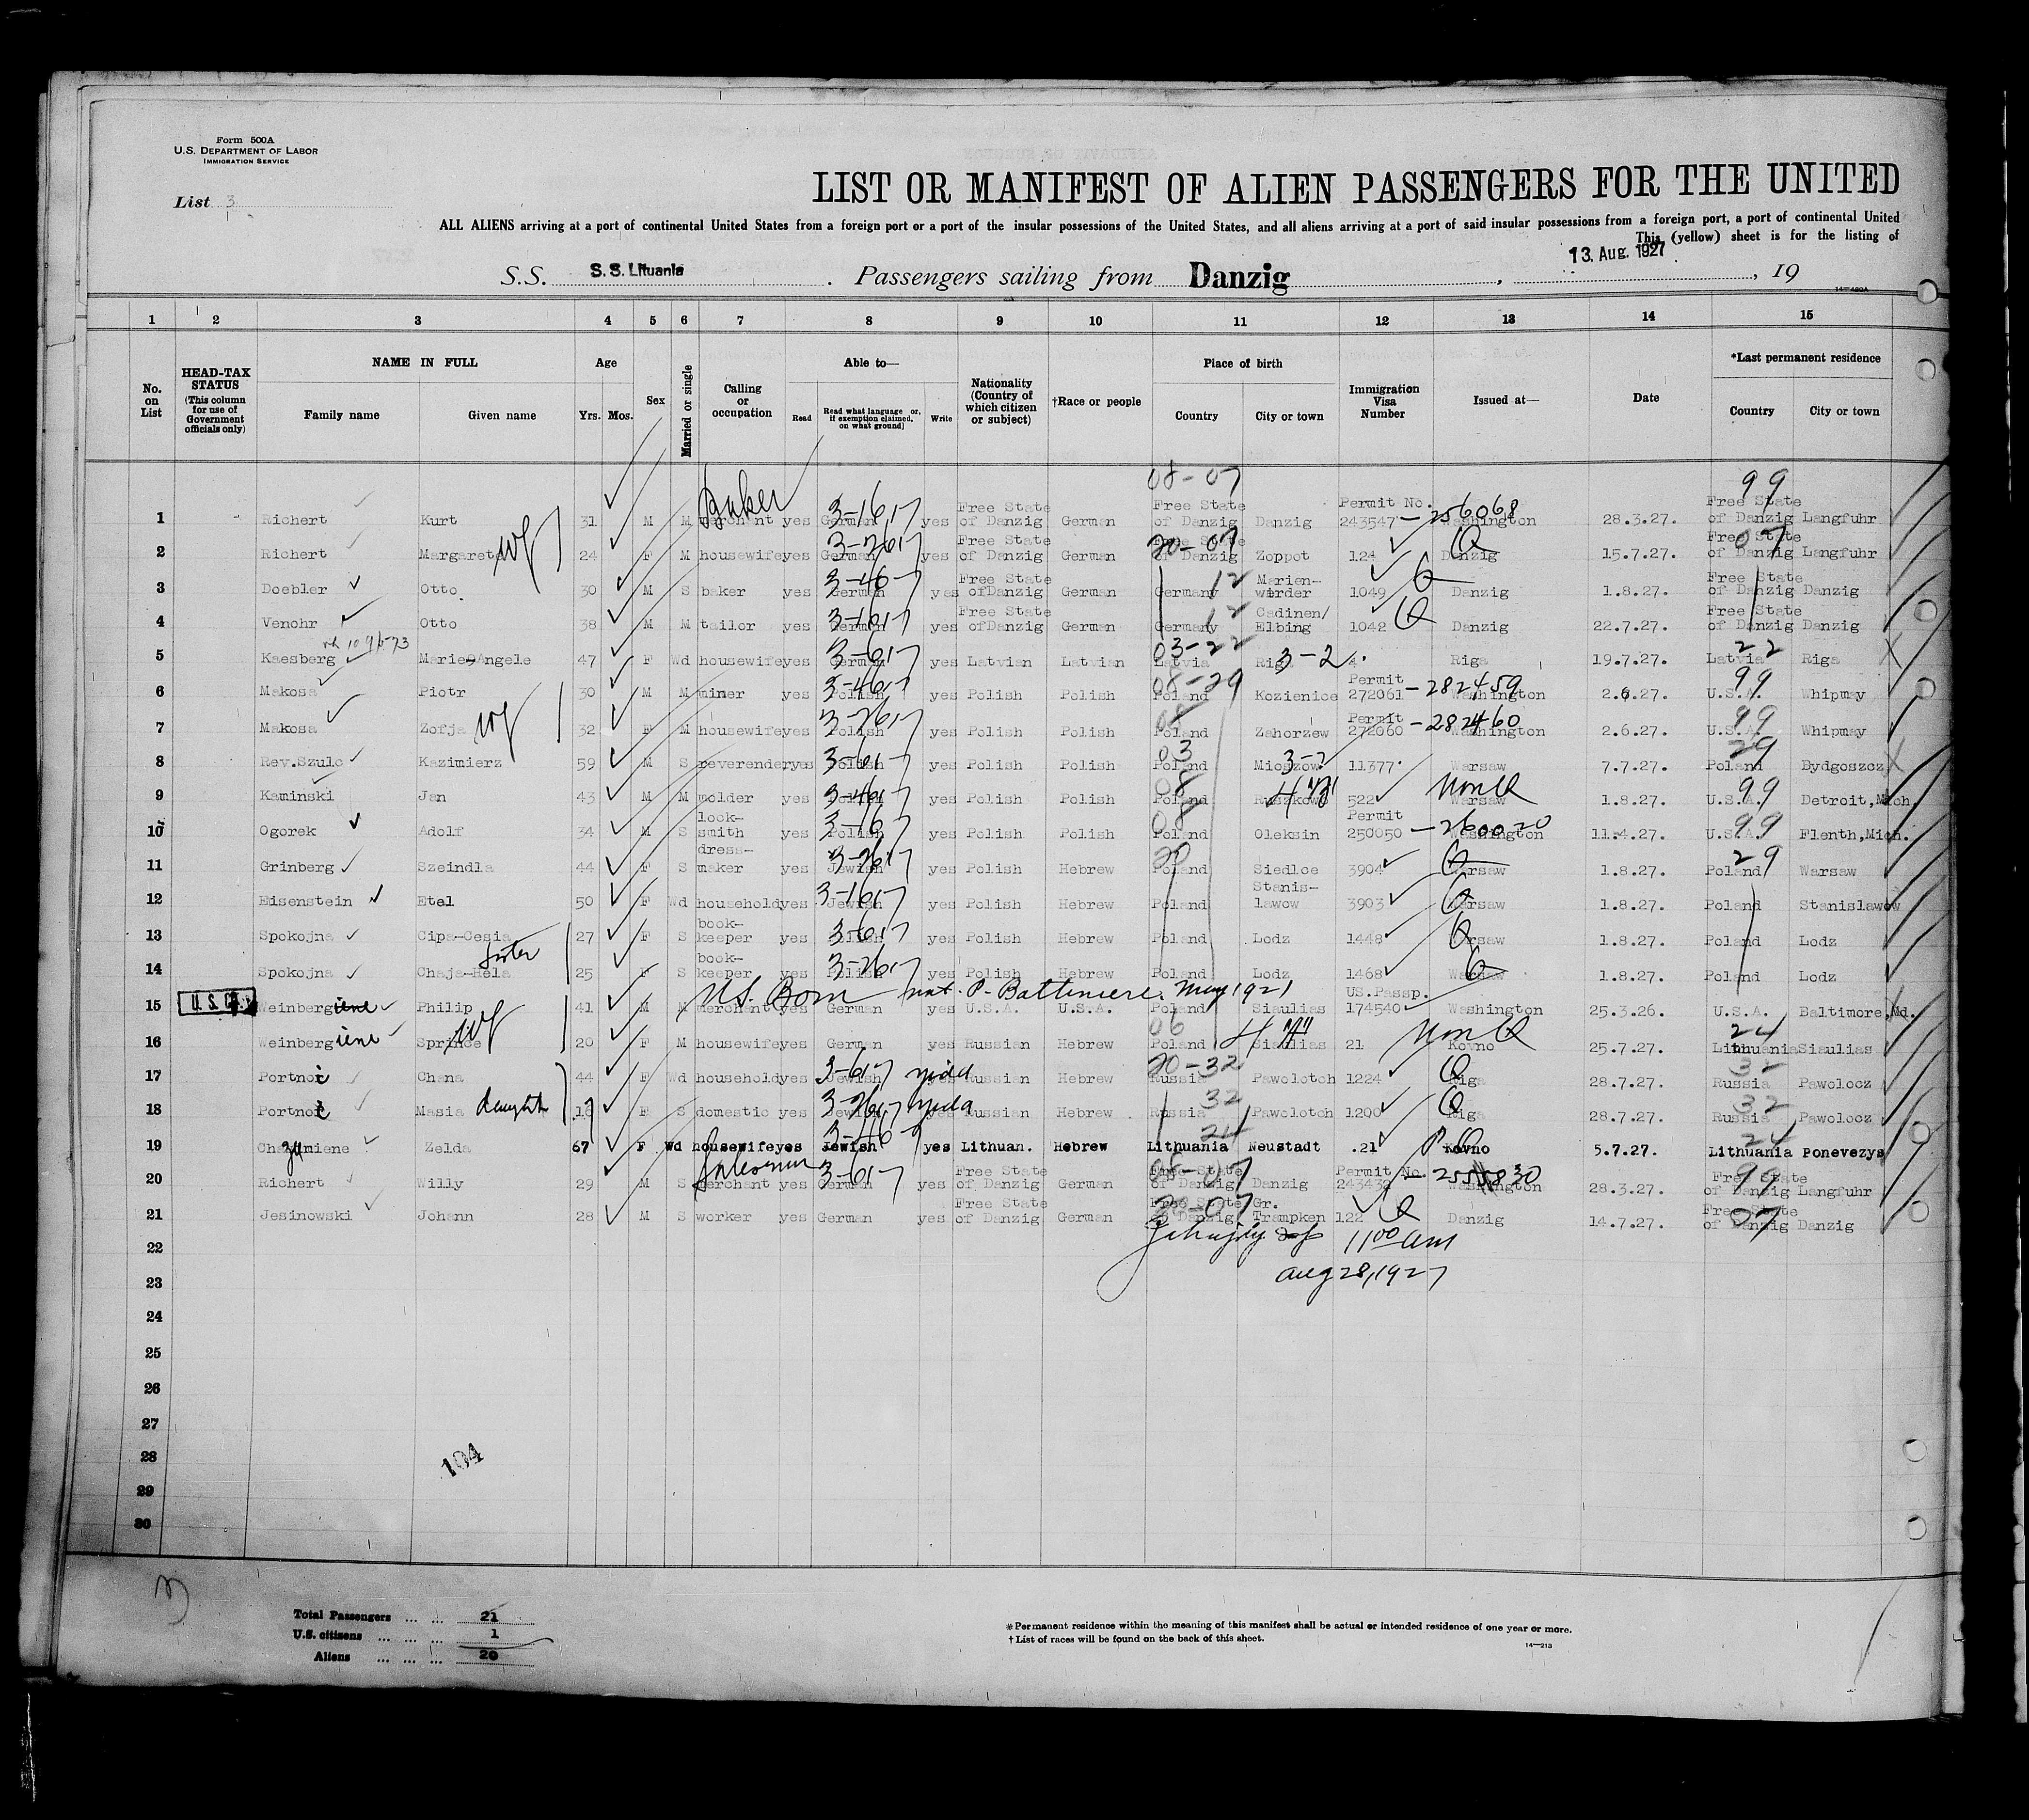 Form 500A
U.S. DEPARTMENT OF LABOR
IMMIGRATION SERVICE
List 3
LIST OR MANIFEST OF ALIEN PASSENGERS FOR THE UNITED
ALL ALIENS arriving at a port of continental United States from a foreign port or a port of the insular possessions of the United States, and all aliens arriving at a port of said insular possessions from a foreign port, a port of continental United
This (yellow) sheet is for the listing of
S.S. S.S. Lituania . Passengers sailing from Danzig , 13. Aug. 1927 , 19
14—480A
1 2 3 4 5 6 7 8 9 10 11 12 13 14 15
No. on List
HEAD-TAX STATUS (This column for use of Government officials only)
NAME IN FULL
Family name Given name
Age
Yrs. Mos.
Sex
Married or single
Calling or occupation
Able to—
Read Read what language or, if exemption claimed, on what ground) Write
Nationality (Country of which citizen or subject)
†Race or people
Place of birth
Country City or town
Immigration Visa Number
Issued at—
Date
*Last permanent residence
Country City or town
08-07 99
1 Richert Kurt 31 M M merchant Baker yes German 3-1617 yes Free State of Danzig German Free State of Danzig Danzig Permit No. 243547 - 256068 Washington 28.3.27. Free State of Danzig Langfuhr
2 Richert Margarete wf 24 F M housewife yes German 3-2617 yes Free State of Danzig German 20-07 of Danzig Zoppot 124 Danzig Q 15.7.27. Free State of Danzig 07 Langfuhr
3 Doebler Otto 30 M S baker yes German 3-4617 yes Free State of Danzig German Germany 12 Marienwerder 1049 Q Danzig 1.8.27. Free State of Danzig Danzig
4 Venohr Otto 38 M M tailor yes German 3-1617 yes Free State of Danzig German Germany 12 Cadinen/Elbing 1042 Q Danzig 22.7.27. Free State of Danzig Danzig
5 Kaesberg Marie Angele 47 F Wd housewife yes German 3-617 yes Latvian Latvian Latvia 03-22 Riga 3-2 4 Riga 19.7.27. Latvia 22 Riga
6 Makosa Piotr 30 M M miner yes Polish 3-4617 yes Polish Polish Poland 08-29 Kozienice Permit 272061 - 282459 Washington 2.6.27. U.S.A. 99 Whipmay
7 Makosa Zofja wf 32 F M housewife yes Polish 3-2617 yes Polish Polish Poland 08 Zahorzew Permit 272060 - 282460 Washington 2.6.27. U.S.A. 99 Whipmay
8 Rev.Szulc Kazimierz 59 M S reverender yes Polish 3-617 yes Polish Polish Poland 03 Mioszow 3-2 11377 Warsaw 7.7.27. Poland 29 Bydgoszcz
9 Kaminski Jan 43 M M molder yes Polish 3-4617 yes Polish Polish Poland 08 522 Non Q Warsaw 1.8.27. U.S.A. 99 Detroit,Mich.
10 Ogorek Adolf 34 M S looksmith yes Polish 3-1617 yes Polish Polish Poland 08 Oleksin Permit 250050 - 260020 Washington 11.4.27. U.S.A. 99 Flenth,Mich.
11 Grinberg Szeindla 44 F S dressmaker yes Jewish 3-2617 yes Polish Hebrew Poland 20 Siedlce 3904 Q Warsaw 1.8.27. Poland 29 Warsaw
12 Eisenstein Etel 50 F Wd household yes Jewish 3-1617 yes Polish Hebrew Poland Stanislawow 3903 Q Warsaw 1.8.27. Poland Stanislawow
13 Spokojna Cipa-Cesia 27 F S bookkeeper yes Polish 3-617 yes Polish Hebrew Poland Lodz 1448 Q Warsaw 1.8.27. Poland Lodz
14 Spokojna Chaja-Hela sister 25 F S bookkeeper yes Polish 3-2617 yes Polish Hebrew Poland Lodz 1468 Q Warsaw 1.8.27. Poland Lodz
U.S. Born nat. P. Baltimore. May 1921
15 U.S.C. Weinbergiene Philip 41 M M merchant yes German yes U.S.A. U.S.A. Poland Siaulias US.Passp. 174540 Washington 25.3.26. U.S.A. Baltimore,Md.
16 Weinbergiene Sprince wf 20 F M housewife yes German yes Russian Hebrew Poland 06 Siaulias 21 Non Q Kovno 25.7.27. Lithuania 24 Siaulias
17 Portnoi Chana 44 F Wd household yes Jewish 3-617 yes Russian Hebrew Russia 20-32 Pawolotch 1224 Q Riga 28.7.27. Russia 32 Pawolocz
18 Portnoi Masia daught 18 F S domestic yes Jewish 3-2617 yes Russian Hebrew Russia 32 Pawolotch 1200 Q Riga 28.7.27. Russia 32 Pawolocz
19 Zelda 67 F Wd housewife yes Jewish yes Lithuan. Hebrew Lithuania 24 Neustadt .21 Kovno 5.7.27. Lithuania 24 Ponevezys
20 Richert Willy 29 M S merchant yes German 3-617 yes Free State of Danzig German Free State of Danzig 08-07 Danzig Permit No. 243432 - 255830 Washington 28.3.27. Free State of Danzig 99 Langfuhr
21 Jesinowski Johann 28 M S worker yes German yes Free State of Danzig German Free State of Danzig 20-07 Gr. Trampken 122 Q Danzig 14.7.27. Free State of Danzig 07 Danzig
22 11 00 am
23 aug 28, 1927
24
25
26
27
28
29
30
104
3
Total Passengers ... ... 21
U.S. citizens ... ... ... 1
Aliens ... ... ... 20
*Permanent residence within the meaning of this manifest shall be actual or intended residence of one year or more.
†List of races will be found on the back of this sheet.
14—213